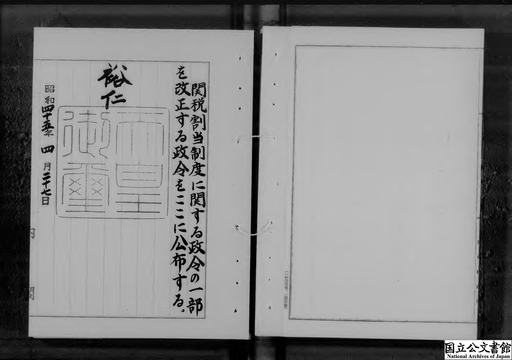 関税割当制度に関する政令の一部
を改正する政令をここに公布する。
裕仁
天皇
御璽
昭和四十五年四月二十七日
国立公文書館
National Archives of Japan